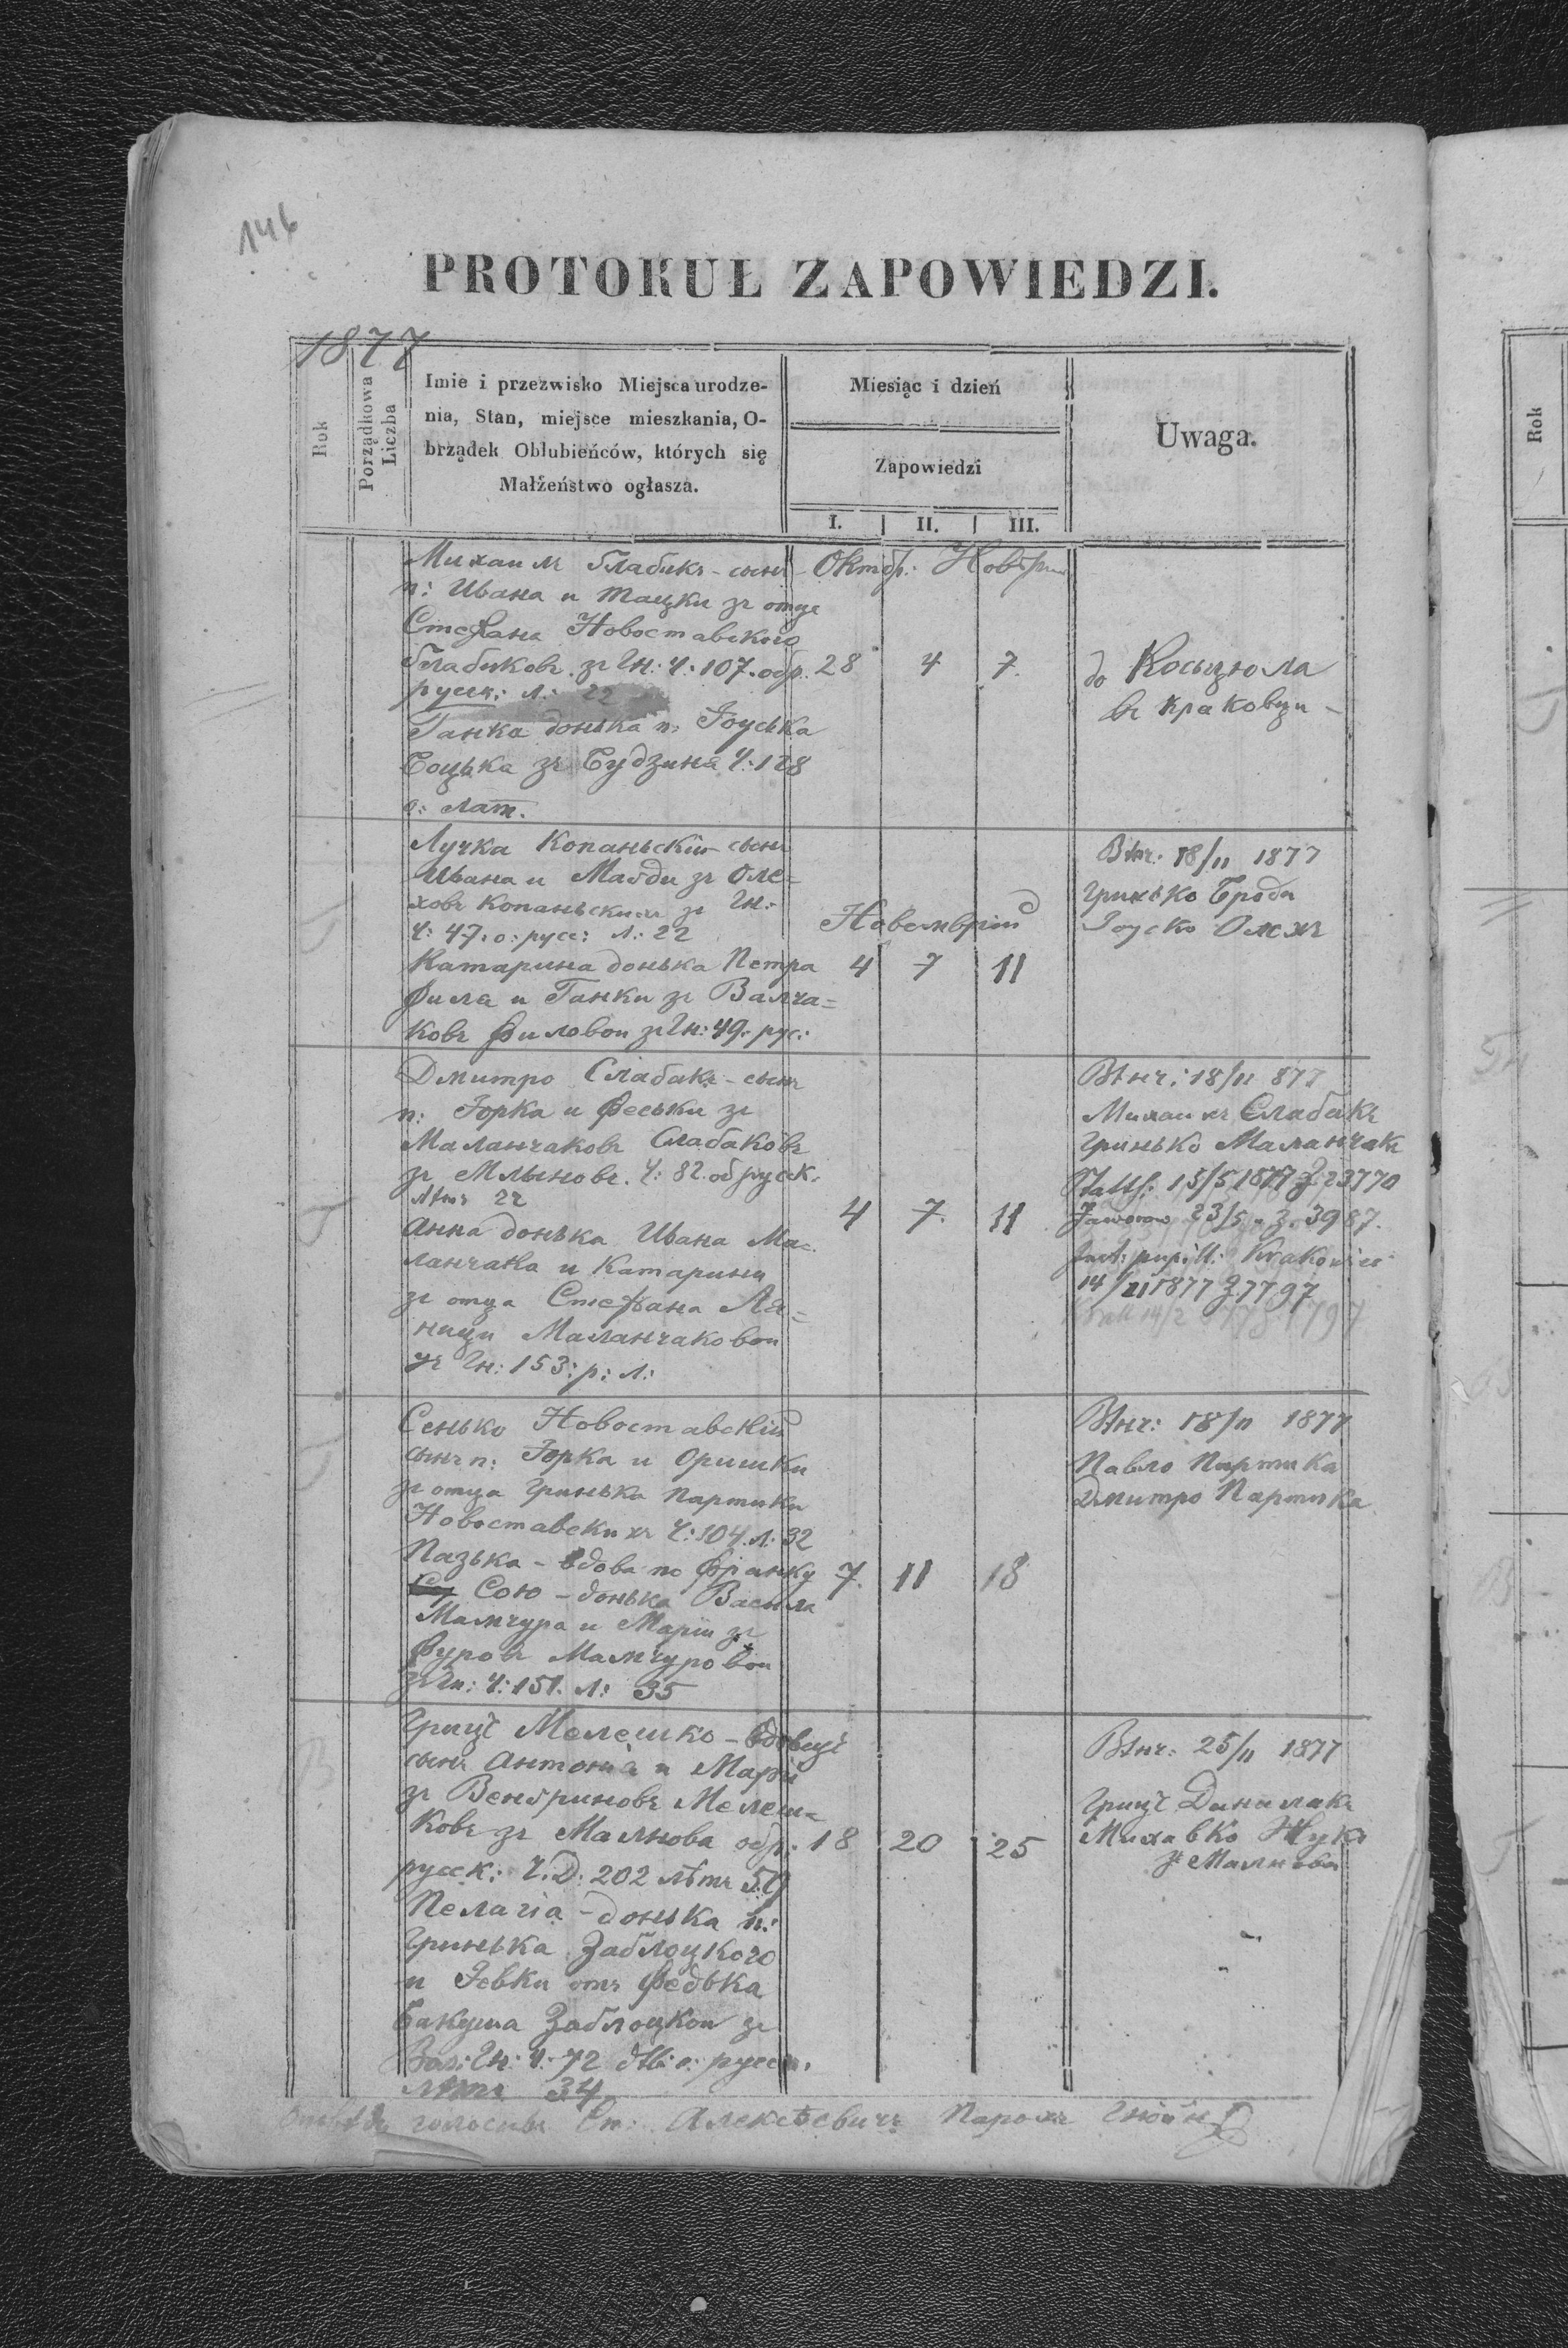 146
PROTOKUŁ ZAPOWIEDZI.
1877
Rok
Porządkowa Liczba
Imie i przezwisko Miejsca urodze-
nia, Stan, miejsce mieszkania, O-
brządek Oblubieńców, których się
Małżeństwo ogłasza.
Miesiąc i dzień
Zapowiedzi
I. II. III.
Uwaga.
Rok
Михаилъ сынъ
п: Ивана и Тацки зъ отца
Стефана Новоставского
зъ Гн: Ч: 107. обр.
русск: л: 22
Ганка донька п: Іоуська
Боцька зъ Будзиня Ч: 128
о: лат.
Октбр: Новбрія
28 4 7.
до Косьцюла
въ Краковци -
Лучка Копаньскій сынъ
Ивана и Магди зъ Оле=
ховъ Копаньскихъ зъ Гн:
Ч: 47. о: русс: л: 22
Катарина донька Петра
Филя и Ганки зъ Валча=
ковъ Филовои зъ Гн: 49. рус:
Новемврій
4 7 11
Вѣнч: 18/11 1877
Гринько Брода
Іоуско Олехъ
Дмитро Слабакъ - сынъ
п: Юрка и Феськи зъ
Маланчаковъ Слабаковъ
зъ Млыновъ. Ч: 82. об русск.
Лѣтъ 22
Анна донька Ивана Ма=
ланчака и Катарини
зъ отца Стефана Ля=
ници Маланчаковои
зъ Гн: 153: р: л:
4 7. 11
Вѣнч: 18/11 877
Михаилъ Слабакъ
Гринько Маланчакъ
15/5 1877 Z 23770
Jaworow 23/5 Z. 3987.
pupill: Krakowiec
14/11 1877 Z 7797
Сенько Новоставскій
сынъ п: Юрка и Оришки
зъ отца Гринька Партики
Новоставскихъ Ч: 104. л: 32
Пазька - вдова по Франку
Сою - донька Василя
Мамчура и Маріи зъ
Фуровъ Мамчуровои
зъ Гн: Ч: 151. л: 35
7. 11 18
Вѣнч: 18/11 1877
Павло Партика
Дмитро Партика
Грицъ Мелешко - вдовецъ
сынъ Антонія и Маріи
зъ Венгриновъ Мелеш=
ковъ зъ Малнова обр:
русск: Ч. D: 202 лѣтъ 59
Пелагія - донька п:
Гринька Заблоцкого
и Іевки отъ Федька
Бакуша Заблоцкои зъ
Гн: Ч: 72 о: русск.
лѣтъ 34
18 20 25
Вѣнч: 25/11 1877
Грицъ Данилакъ
Михавко Жукъ
зъ Малнова
голосивъ Алексѣевичъ Парохъ